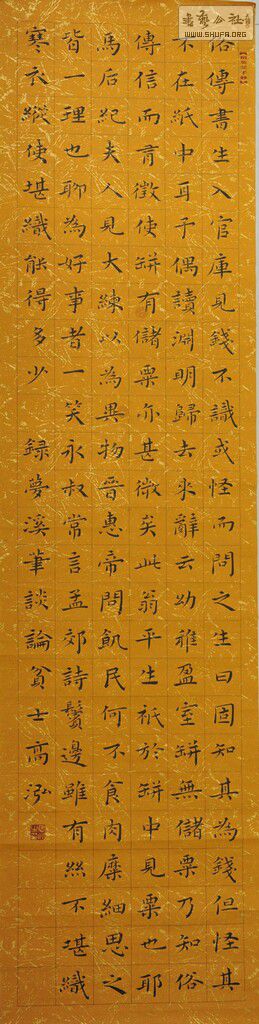 書藝公社
WWW.SHUFA.ORG
俗傳書生入官庫見錢不識或怪而問之生曰固知其為錢但怪其
不在紙中耳予偶讀淵明歸去來辭云幼稚盈室缾無儲粟乃知俗
傳信而有徵使缾有儲粟亦甚微矣此翁平生衹於缾中見粟也耶
馬后紀夫人見大練以為異物晉惠帝問飢民何不食肉糜細思之
皆一理也聊為好事者一笑永叔常言孟郊詩鬢邊雖有絲不堪織
寒衣縱使堪織能得多少 錄夢溪筆談論貧士高泓